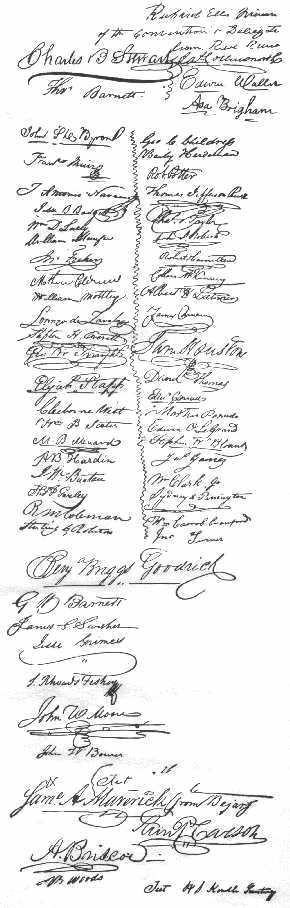 Richard Ellis
of the Convention & Delegate
from Red River
Charles B Stewart
Thos Barnett
Edwin Waller
Asa Brigham
John S D Byrom
J Antonio Navarro
Wm D Lacy
William Menefee
Jn Fisher
William Mottley
Lorenzo de Zavala
Geo W Smyth
Stephen H Everett
Elijah Stapp
Claiborne West
Wm B Scates
M B Menard
A B Hardin
J W Bunton
R M Coleman
Sterling C Robertson
Geo C Childress
Baily Hardeman
Rob Potter
Thomas Jefferson Rusk
Robert Hamilton
Collin McKinney
Albert H Latimer
James Power
Sam Houston
David Thomas
Edwd Conrad
Martin Parmer
Edwin O LeGrand
Stephen W Blount
Jas Gaines
Wm Clark Jr
Sydney O Penington
Wm Carrol Crawford
Jno Turner
Benj Briggs Goodrich
G W Barnett
James G Swisher
Jesse Grimes
S Rhoads Fisher
John W Moore
John W Bower
Saml A Maverick from Bejar
Sam P Carson
A Briscoe
J B Woods
Test H S Kimble Secretary